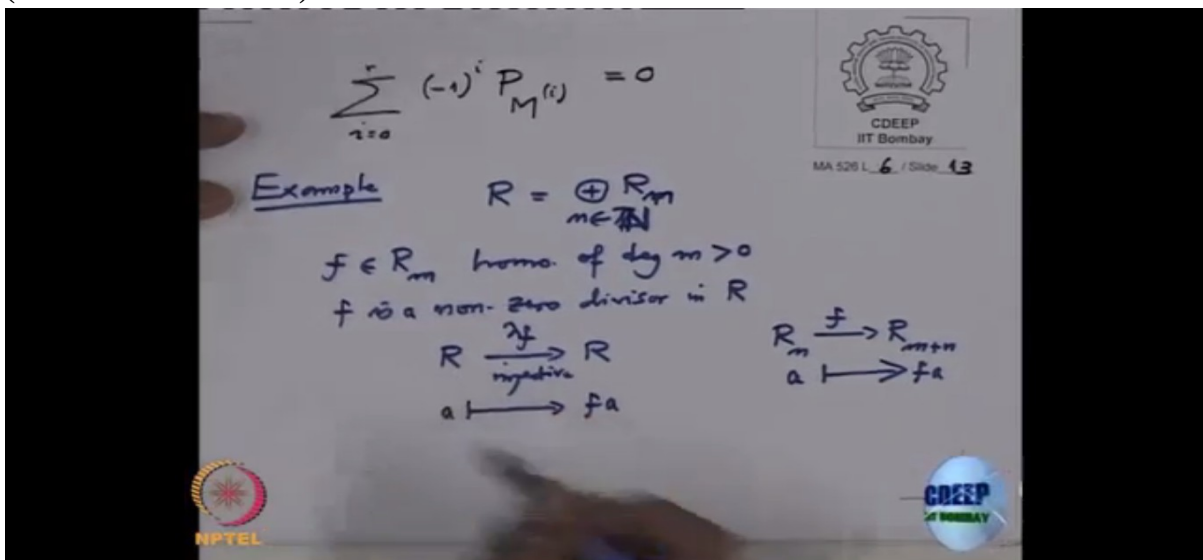 ∑_{i=0}^{r} (-1)^i P_{M^{(i)}} = 0
CDEEP
IIT Bombay
MA 526 L 6 / Slide 13
Example R = ⊕_{n∈ℕ} R_n
f ∈ R_m homo. of deg m > 0
f is a non-zero divisor in R
R —λ_f→ R
injective
a ⟼ fa
R_n —f→ R_{m+n}
a ⟼ fa
NPTEL
CDEEP
IIT BOMBAY